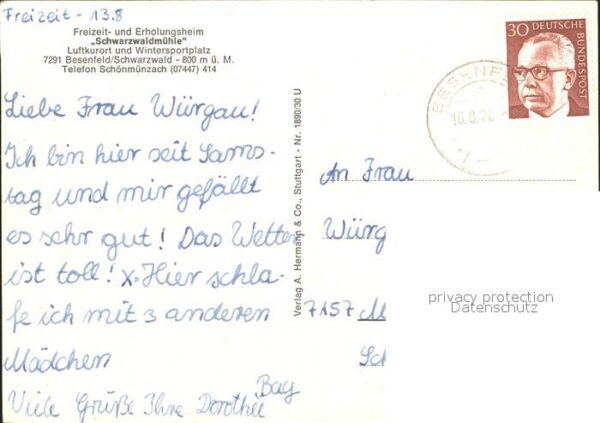 Freizeit - 13.8
Freizeit- und Erholungsheim
„Schwarzwaldmühle"
Luftkurort und Wintersportplatz
7291 Besenfeld/Schwarzwald - 800 m ü. M.
Telefon Schönmünzach (07447) 414
Liebe Frau Würgau!
Ich bin hier seit Sams-
tag und mir gefällt
es sehr gut! Das Wetter
ist toll! X=Hier schla-
fe ich mit 3 anderen
Mädchen
Viele Grüße Ihre Dorothée
Bay
Verlag A. Hermann & Co., Stuttgart - Nr. 1890/30 U
30 DEUTSCHE BUNDESPOST
BESENFE
10.8.72
An Frau
Würg
7157 M
Sc
privacy protection
Datenschutz